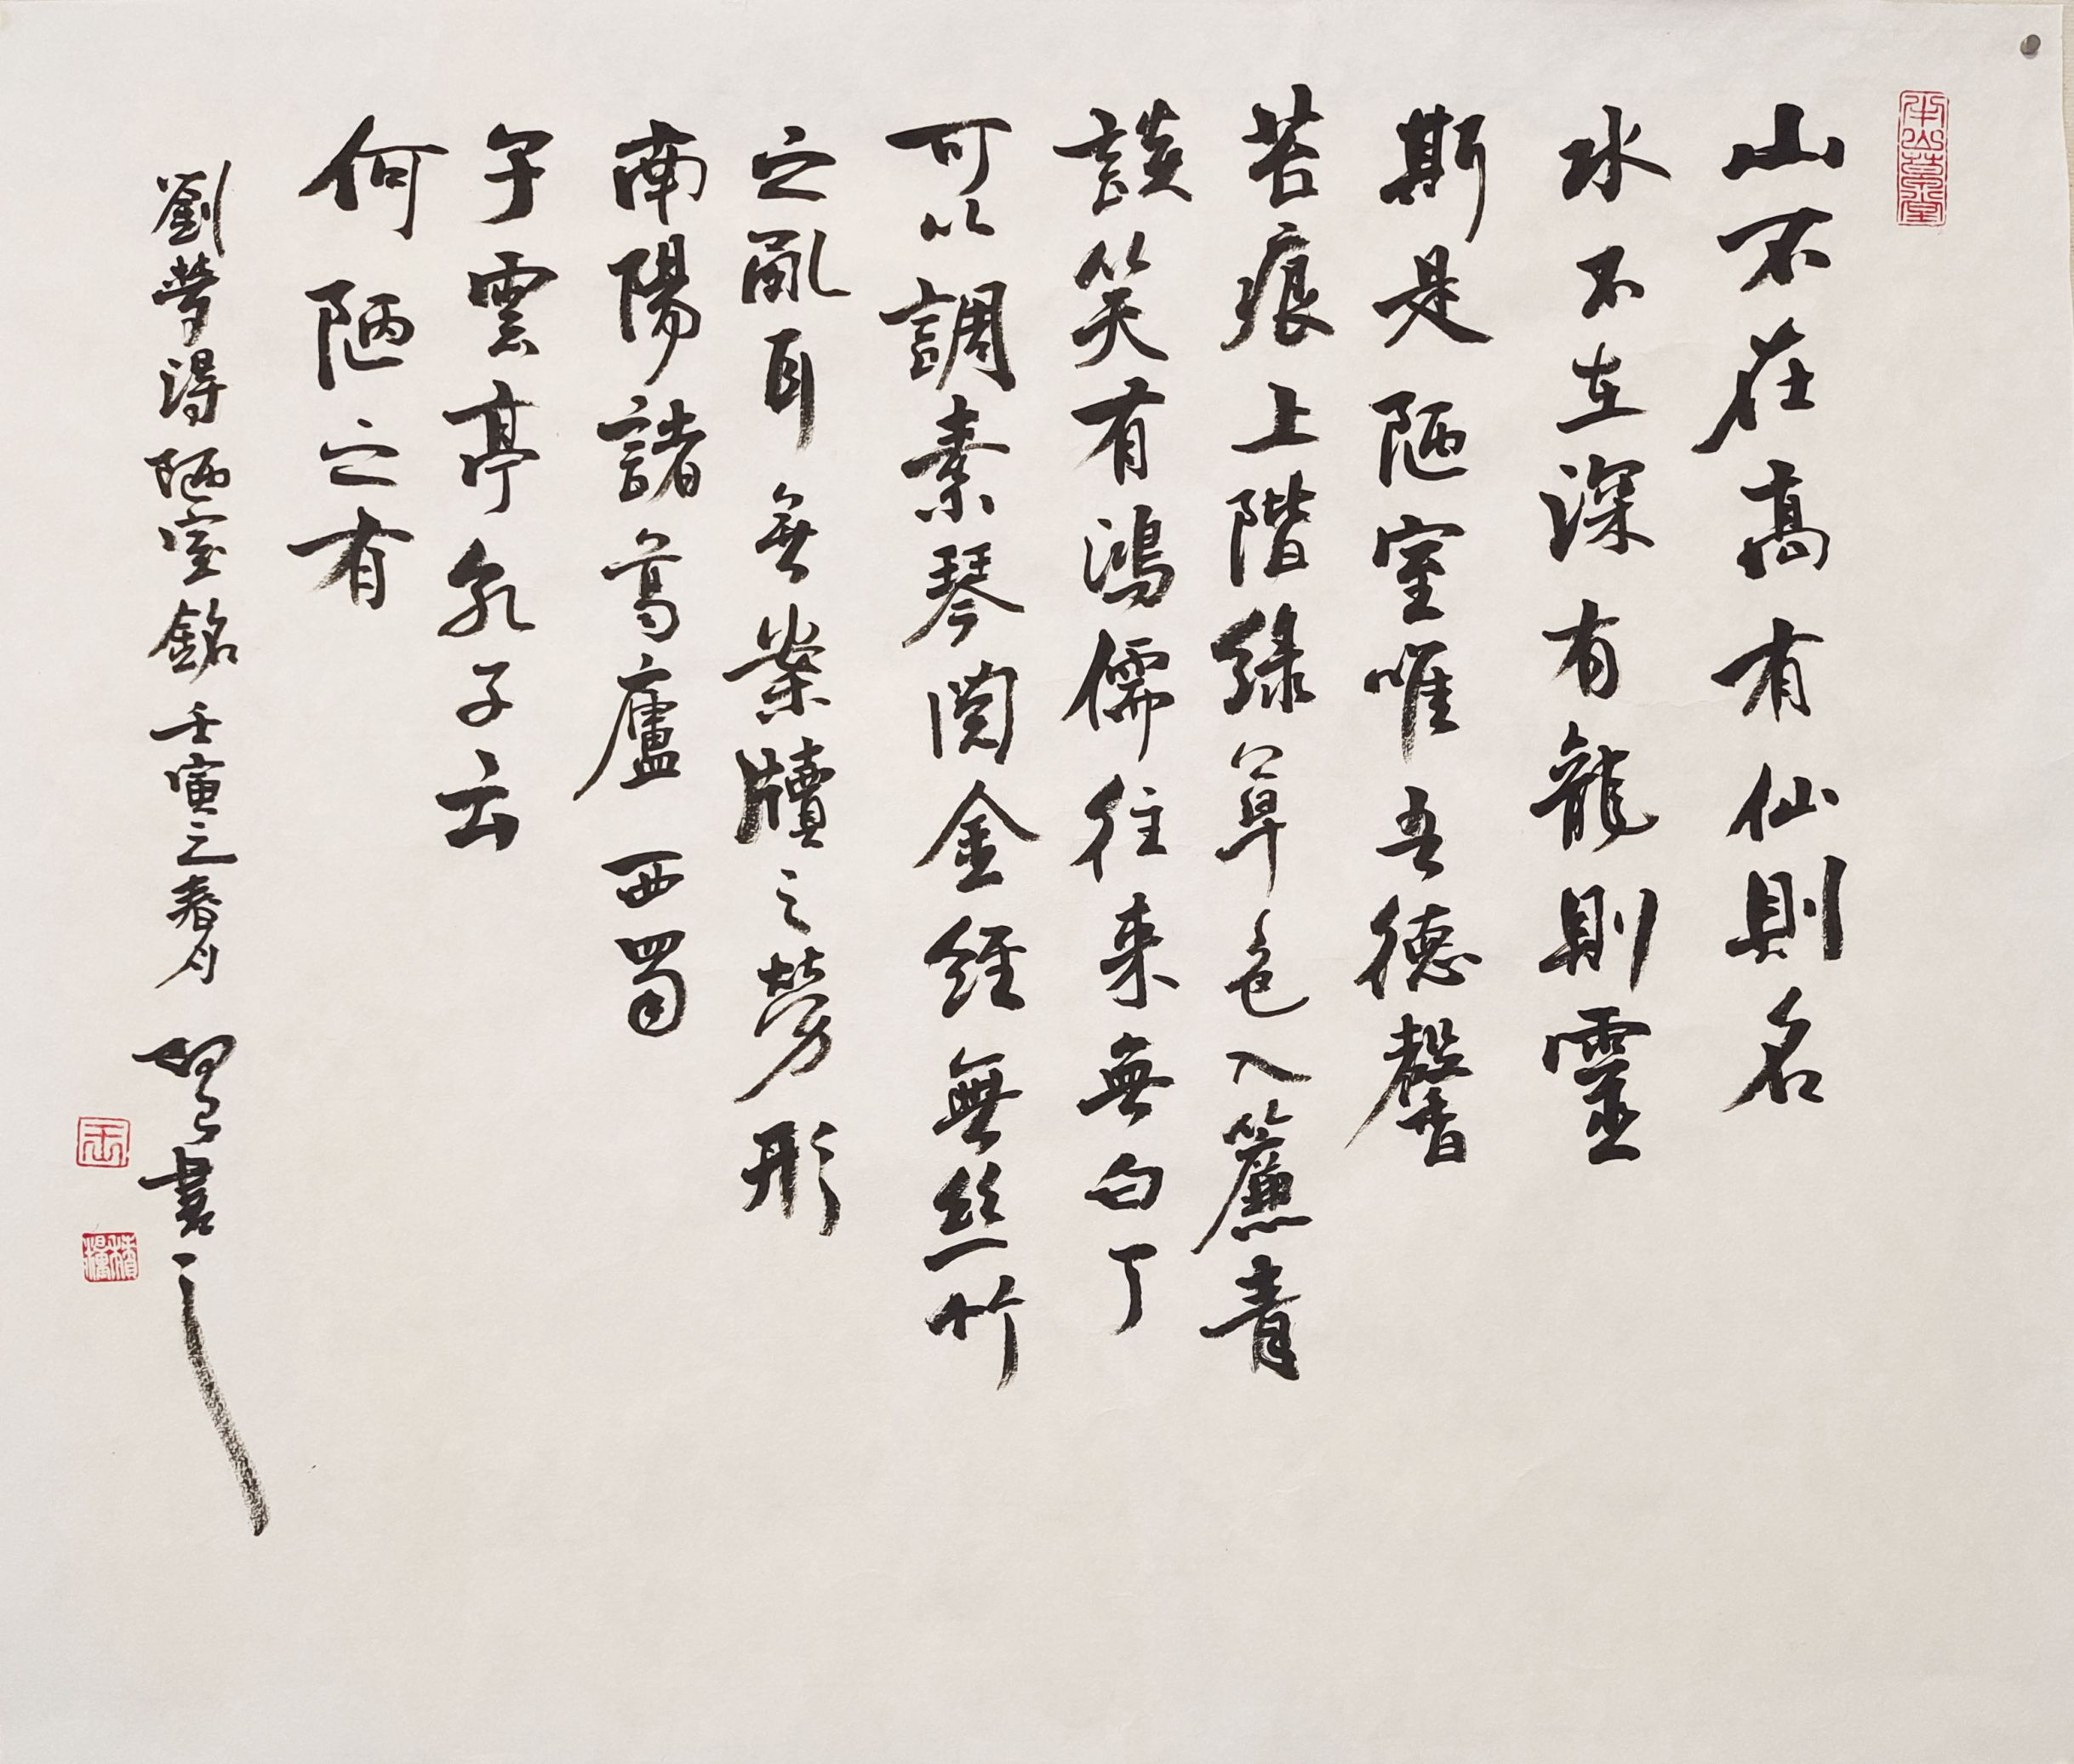 山不在高有仙則名
水不在深有龍則靈
斯是陋室唯吾德馨
苔痕上階綠草色入簾青
談笑有鴻儒往來無白丁
可以調素琴閱金經無丝竹
之亂耳無案牘之勞形
南陽諸葛廬西蜀
子雲亭孔子云
何陋之有
劉夢得陋室銘壬寅之春月書之